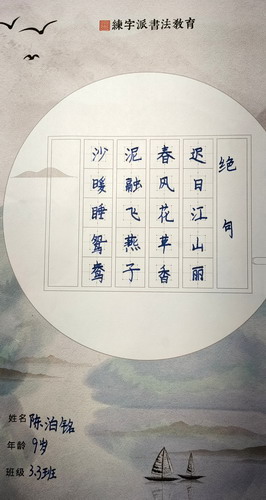 練字派書法教育
绝句
迟日江山丽
春风花草香
泥融飞燕子
沙暖睡鸳鸯
姓名 陈泊铭
年龄 9岁
班级 3.3班